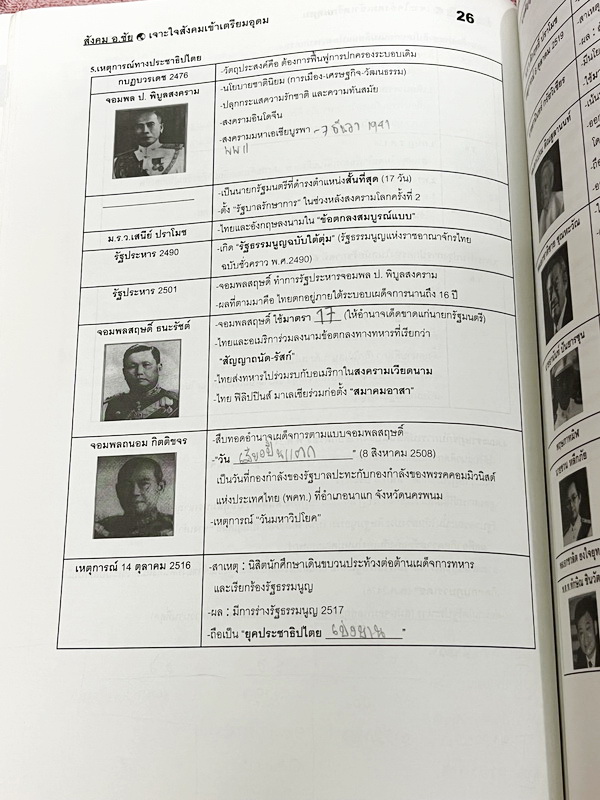 สังคม อ.ชัย เจาะใจสังคมเข้าเตรียมอุดม
26
5.เหตุการณ์ทางประชาธิปไตย
กบฏบวรเดช 2476
-วัตถุประสงค์คือ ต้องการฟื้นฟูการปกครองระบอบเดิม
จอมพล ป. พิบูลสงคราม
-นโยบายชาตินิยม (การเมือง-เศรษฐกิจ-วัฒนธรรม)
-ปลุกกระแสความรักชาติ และความทันสมัย
-สงครามอินโดจีน
-สงครามมหาเอเชียบูรพา ~7 ธันวา 1941
ม.ร.ว.เสนีย์ ปราโมช
-เป็นนายกรัฐมนตรีที่ดำรงตำแหน่งสั้นที่สุด (17 วัน)
-ตั้ง "รัฐบาลรักษาการ" ในช่วงหลังสงครามโลกครั้งที่ 2
-ไทยและอังกฤษลงนามใน "ข้อตกลงสมบูรณ์แบบ"
รัฐประหาร 2490
-เกิด "รัฐธรรมนูญฉบับใต้ตุ่ม" (รัฐธรรมนูญแห่งราชอาณาจักรไทย
ฉบับชั่วคราว พ.ศ.2490)
รัฐประหาร 2501
-จอมพลสฤษดิ์ ทำการรัฐประหารจอมพล ป. พิบูลสงคราม
-ผลที่ตามมาคือ ไทยตกอยู่ภายใต้ระบอบเผด็จการนานถึง 16 ปี
จอมพลสฤษดิ์ ธนะรัชต์
-จอมพลสฤษดิ์ ใช้มาตรา 17 (ให้อำนาจเด็ดขาดแก่นายกรัฐมนตรี)
-ไทยและอเมริการ่วมลงนามข้อตกลงทางทหารที่เรียกว่า
"สัญญาถนัด-รัสก์"
-ไทยส่งทหารไปร่วมรบกับอเมริกาในสงครามเวียดนาม
-ไทย ฟิลิปปินส์ มาเลเซียร่วมก่อตั้ง "สมาคมอาสา"
จอมพลถนอม กิตติขจร
-สืบทอดอำนาจเผด็จการตามแบบจอมพลสฤษดิ์
-"วัน เสียงปืนแตก " (8 สิงหาคม 2508)
เป็นวันที่กองกำลังของรัฐบาลปะทะกับกองกำลังของพรรคคอมมิวนิสต์
แห่งประเทศไทย (พคท.) ที่อำเภอนาแก จังหวัดนครพนม
-เหตุการณ์ "วันมหาวิปโยค"
เหตุการณ์ 14 ตุลาคม 2516
-สาเหตุ : นิสิตนักศึกษาเดินขบวนประท้วงต่อต้านเผด็จการทหาร
และเรียกร้องรัฐธรรมนูญ
-ผล : มีการร่างรัฐธรรมนูญ 2517
-ถือเป็น "ยุคประชาธิปไตย เบ่งบาน "